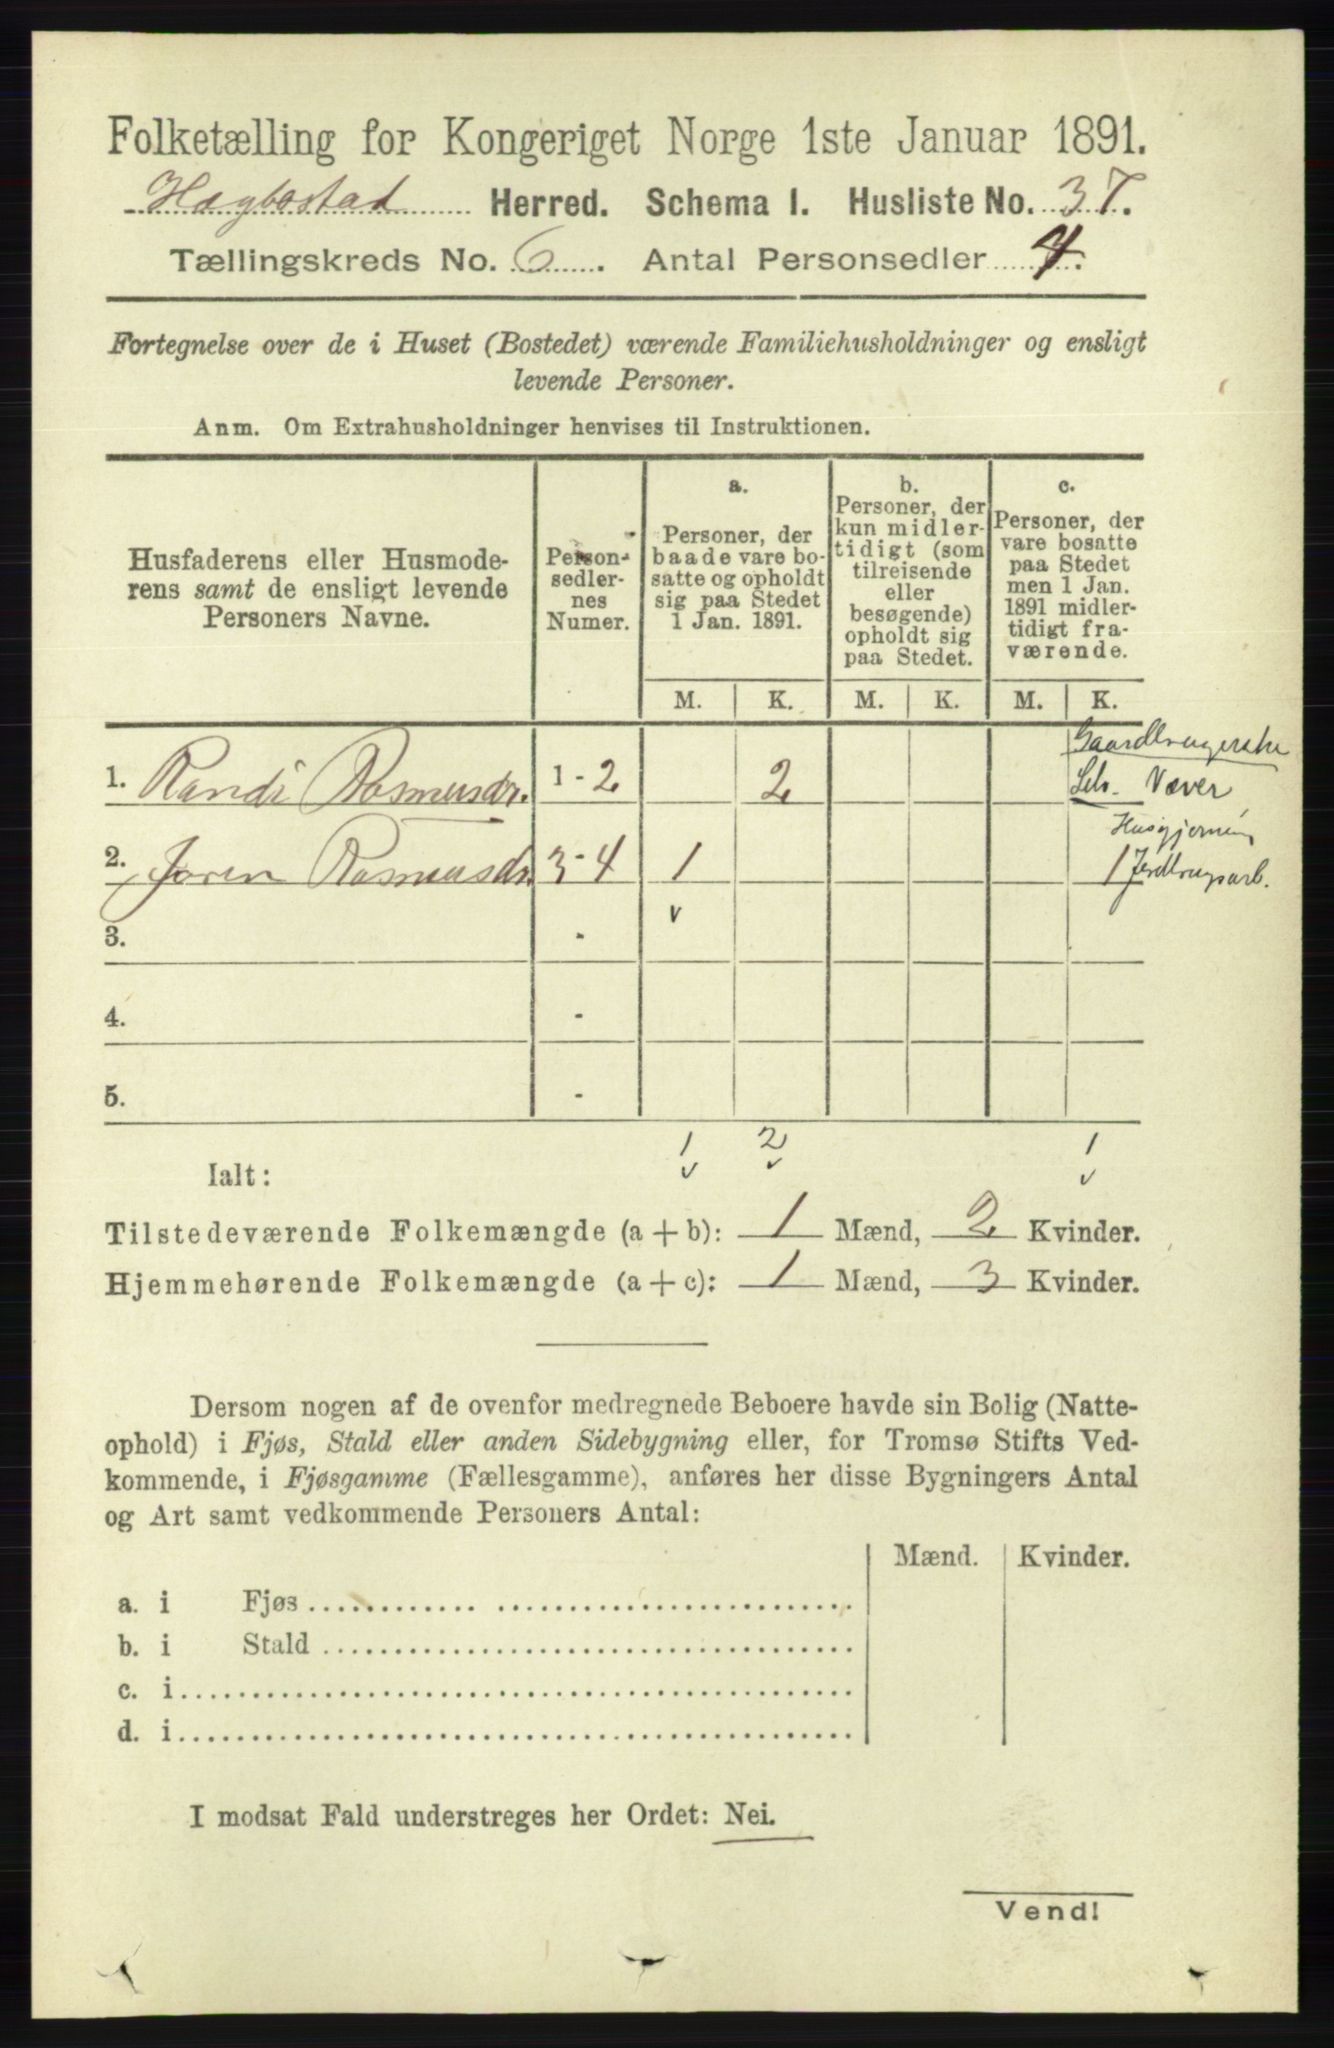 Folketælling for Kongeriget Norge 1ste Januar 1891.
Hægbostad Herred. Schema I. Husliste No. 37.
Tællingskreds No. 6. Antal Personsedler 4.
Fortegnelse over de i Huset (Bostedet) værende Familiehusholdninger og ensligt
levende Personer.
Anm. Om Extrahusholdninger henvises til Instruktionen.
Husfaderens eller Husmode-
rens samt de ensligt levende
Personers Navne.
Person-
sedler-
nes
Numer.
a.
Personer, der
baade vare bo-
satte og opholdt
sig paa Stedet
1 Jan. 1891.
b.
Personer, der
kun midler-
tidigt (som
tilreisende
eller
besøgende)
opholdt sig
paa Stedet.
c.
Personer, der
vare bosatte
paa Stedet
men 1 Jan.
1891 midler-
tidigt fra-
værende.
M. K. M. K. M. K.
Gaardbrugerske
1. Randi Rasmusdr. 1 - 2 2 Selv. Væver
Husgjerning
2. Joren Rasmusdr. 3 - 4 1 1 Jordbrugsarb.
v
3. -
4. -
5. -
1 2 1
v v v
Ialt:
Tilstedeværende Folkemængde (a + b): 1 Mænd, 2 Kvinder.
Hjemmehørende Folkemængde (a + c): 1 Mænd, 3 Kvinder.
Dersom nogen af de ovenfor medregnede Beboere havde sin Bolig (Natte-
ophold) i Fjøs, Stald eller anden Sidebygning eller, for Tromsø Stifts Ved-
kommende, i Fjøsgamme (Fællesgamme), anføres her disse Bygningers Antal
og Art samt vedkommende Personers Antal:
Mænd. Kvinder.
a. i Fjøs
b. i Stald
c. i
d. i
I modsat Fald understreges her Ordet: Nei.
Vend!